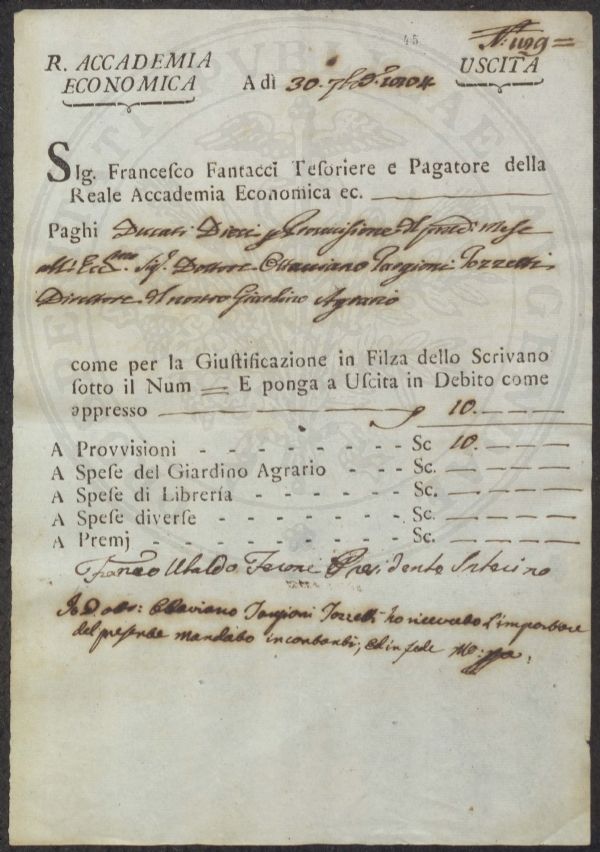 45
N.° 1129=
R. ACCADEMIA
ECONOMICA
A dì 30. 7bre. 1804
USCITA
SIg. Francesco Fantacci Tesoriere e Pagatore della
Reale Accademia Economica ec.
Paghi Ducati Dieci p Provvisione del sud.° Mese
all' Ecc.mo Sig.r Dottore Ottaviano Targioni Tozzetti
Direttore del nostro Giardino Agrario
come per la Giustificazione in Filza dello Scrivano
sotto il Num = E ponga a Uscita in Debito come
appresso 10.
A Provvisioni - - - - - - - - Sc 10.
A Spese del Giardino Agrario - - - - Sc.
A Spese di Librerìa - - - - - - - Sc.
A Spese diverse - - - - - - - - Sc.
A Premj - - - - - - - - - - Sc.
Franco Ubaldo Feroni Presidente Interino
Io Dotto: Ottaviano Targioni Tozzetti ho ricevuto l'importare
del presente mandato in contanti, ed in fede Mo: ppa